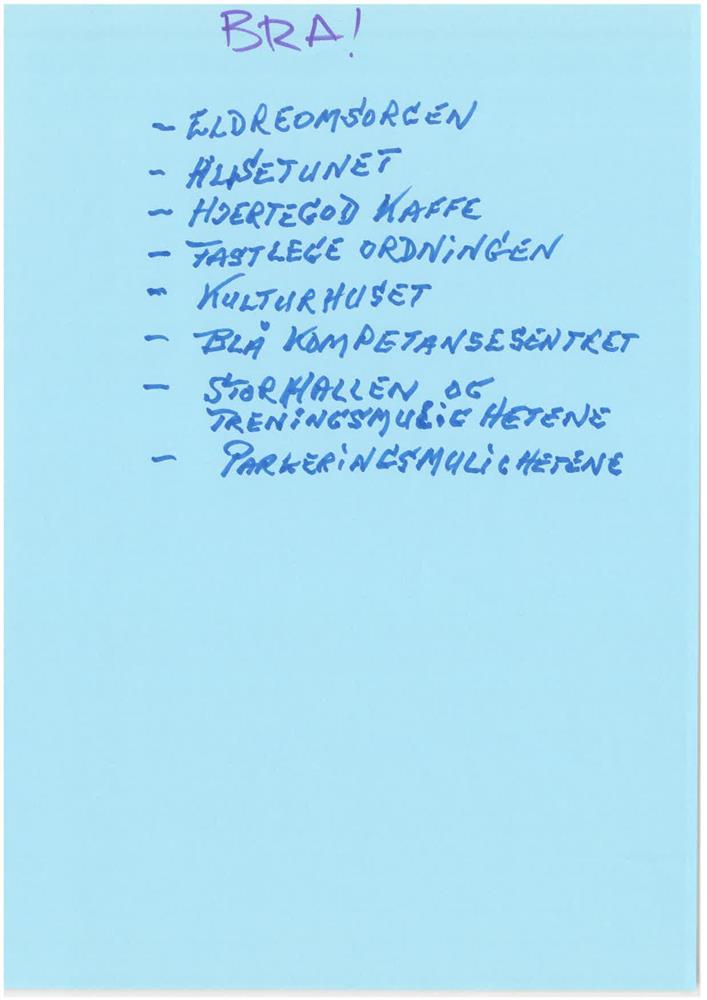 BRA!
- ELDREOMSORGEN
- HJERTEGOD KAFFE
- FASTLEGE ORDNINGEN
- KULTURHUSET
- BLÅ KOMPETANSESENTRET
- STORHALLEN OG
TRENINGSMULIGHETENE
- PARKERINGSMULIGHETENE